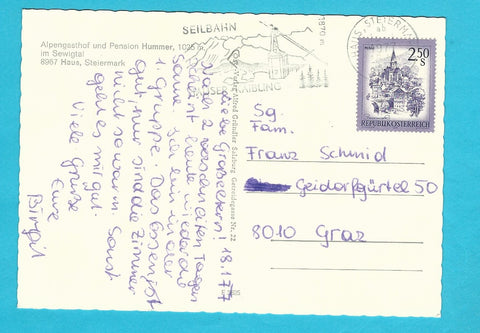 Alpengasthof und Pension Hummer, 1025 m
im Sewigtal
8967 Haus, Steiermark
SEILBAHN
1870 m
HAUSER KAIBLING
HAUS, STEIERMARK
2.50 S
REPUBLIK ÖSTERREICH
Verlag Alfred Gründler Salzburg Getreidegasse Nr. 22
18.1.77
Liebe Großeltern!
Nach 2 verschneiten Tagen
scheint heute wieder die
Sonne. Ich bin in der
1. Gruppe. Das Essen ist
gut, nur sind die Zimmer
nicht so warm. Sonst
geht es mir gut.
Viele Grüße
Eure
Birgit
Sg.
Fam.
Franz Schmid
Geidorfgürtel 50
8010 Graz